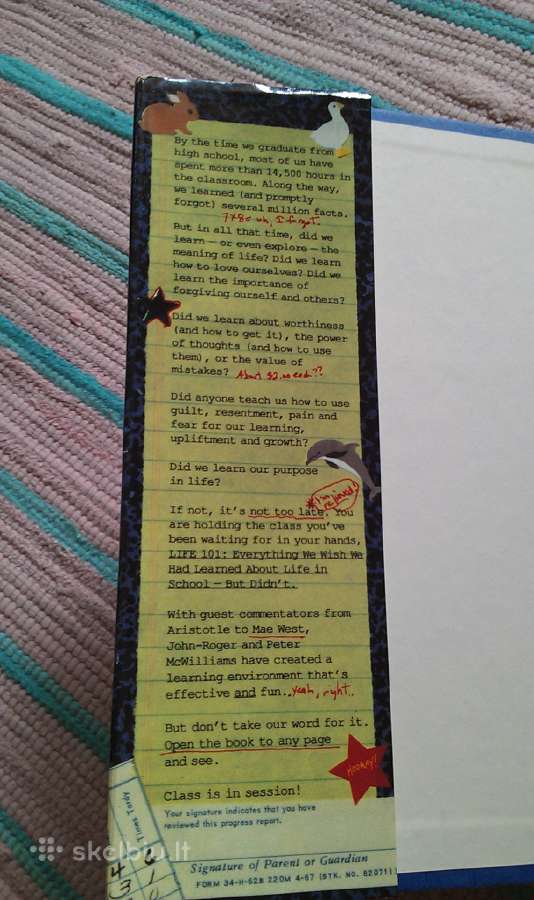 By the time we graduate from
high school, most of us have
spent more than 14,500 hours in
the classroom. Along the way,
we learned (and promptly
forgot) several million facts.
7x8= uh, I forgot.
But in all that time, did we
learn — or even explore — the
meaning of life? Did we learn
how to love ourselves? Did we
learn the importance of
forgiving ourself and others?
Did we learn about worthiness
(and how to get it), the power
of thoughts (and how to use
them), or the value of
mistakes? About $2 each??
Did anyone teach us how to use
guilt, resentment, pain and
fear for our learning,
upliftment and growth?
Did we learn our purpose
in life?
I'm relieved!
If not, it's not too late. You
are holding the class you've
been waiting for in your hands,
LIFE 101: Everything We Wish We
Had Learned About Life in
School — But Didn't.
With guest commentators from
Aristotle to Mae West,
John-Roger and Peter
McWilliams have created a
learning environment that's
effective and fun... yeah, right..
But don't take our word for it.
Open the book to any page
and see.
Hooray!
Class is in session!
Your signature indicates that you have
reviewed this progress report.
Times Tardy
Signature of Parent or Guardian
FORM 34-H-52B 220M 4-67 (STK. NO. 820711)
skelbiu.lt